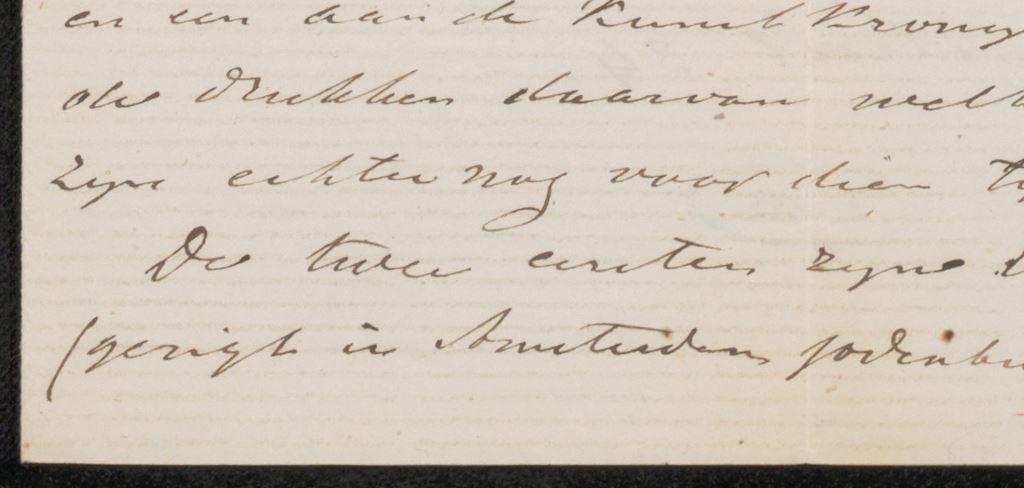 en een aan de Kunst Krony
die drukken daarvan wel
zyn echter nog voor dien
De twee eersten zyn
(gezigt in Amsterdam Joden